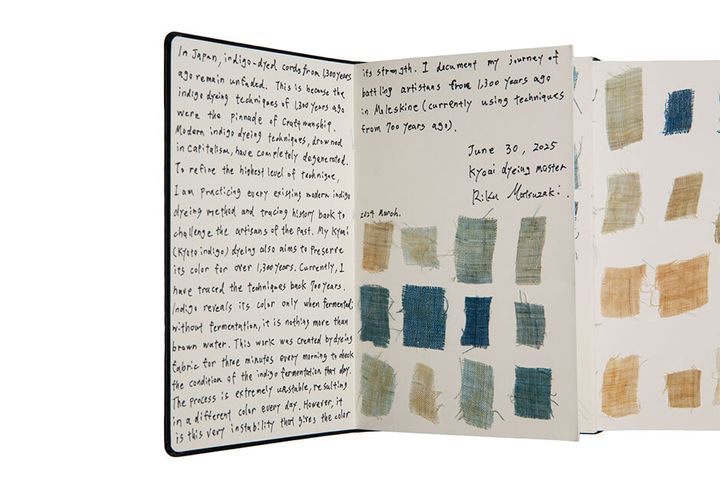 In Japan, indigo-dyed cords from 1,300 years
ago remain unfaded. This is because the
indigo dyeing techniques of 1,300 years ago
were the Pinnacle of Craftmanship.
Modern indigo dyeing techniques, drowned
in Capitalism, have completely degenerated.
To refine the highest level of technique,
I am practicing every existing modern indigo
dyeing method and tracing history back to
challenge the artisans of the Past. My Kyoai
(Kyoto indigo) dyeing also aims to Preserve
its color for over 1,300 years. Currently, I
have traced the techniques back 700 years.
Indigo reveals its color only when fermented;
without fermentation, it is nothing more than
brown water. This work was created by dyeing
fabric for three minutes every morning to check
the condition of the indigo fermentation that day.
The process is extremely unstable, resulting
in a different color every day. However, it
is this very instability that gives the color
its strength. I document my journey of
battling artisans from 1,300 years ago
in Moleskine (currently using techniques
from 700 years ago).
June 30, 2025
Kyoai dyeing master
Riku Matsuzaki.
March.